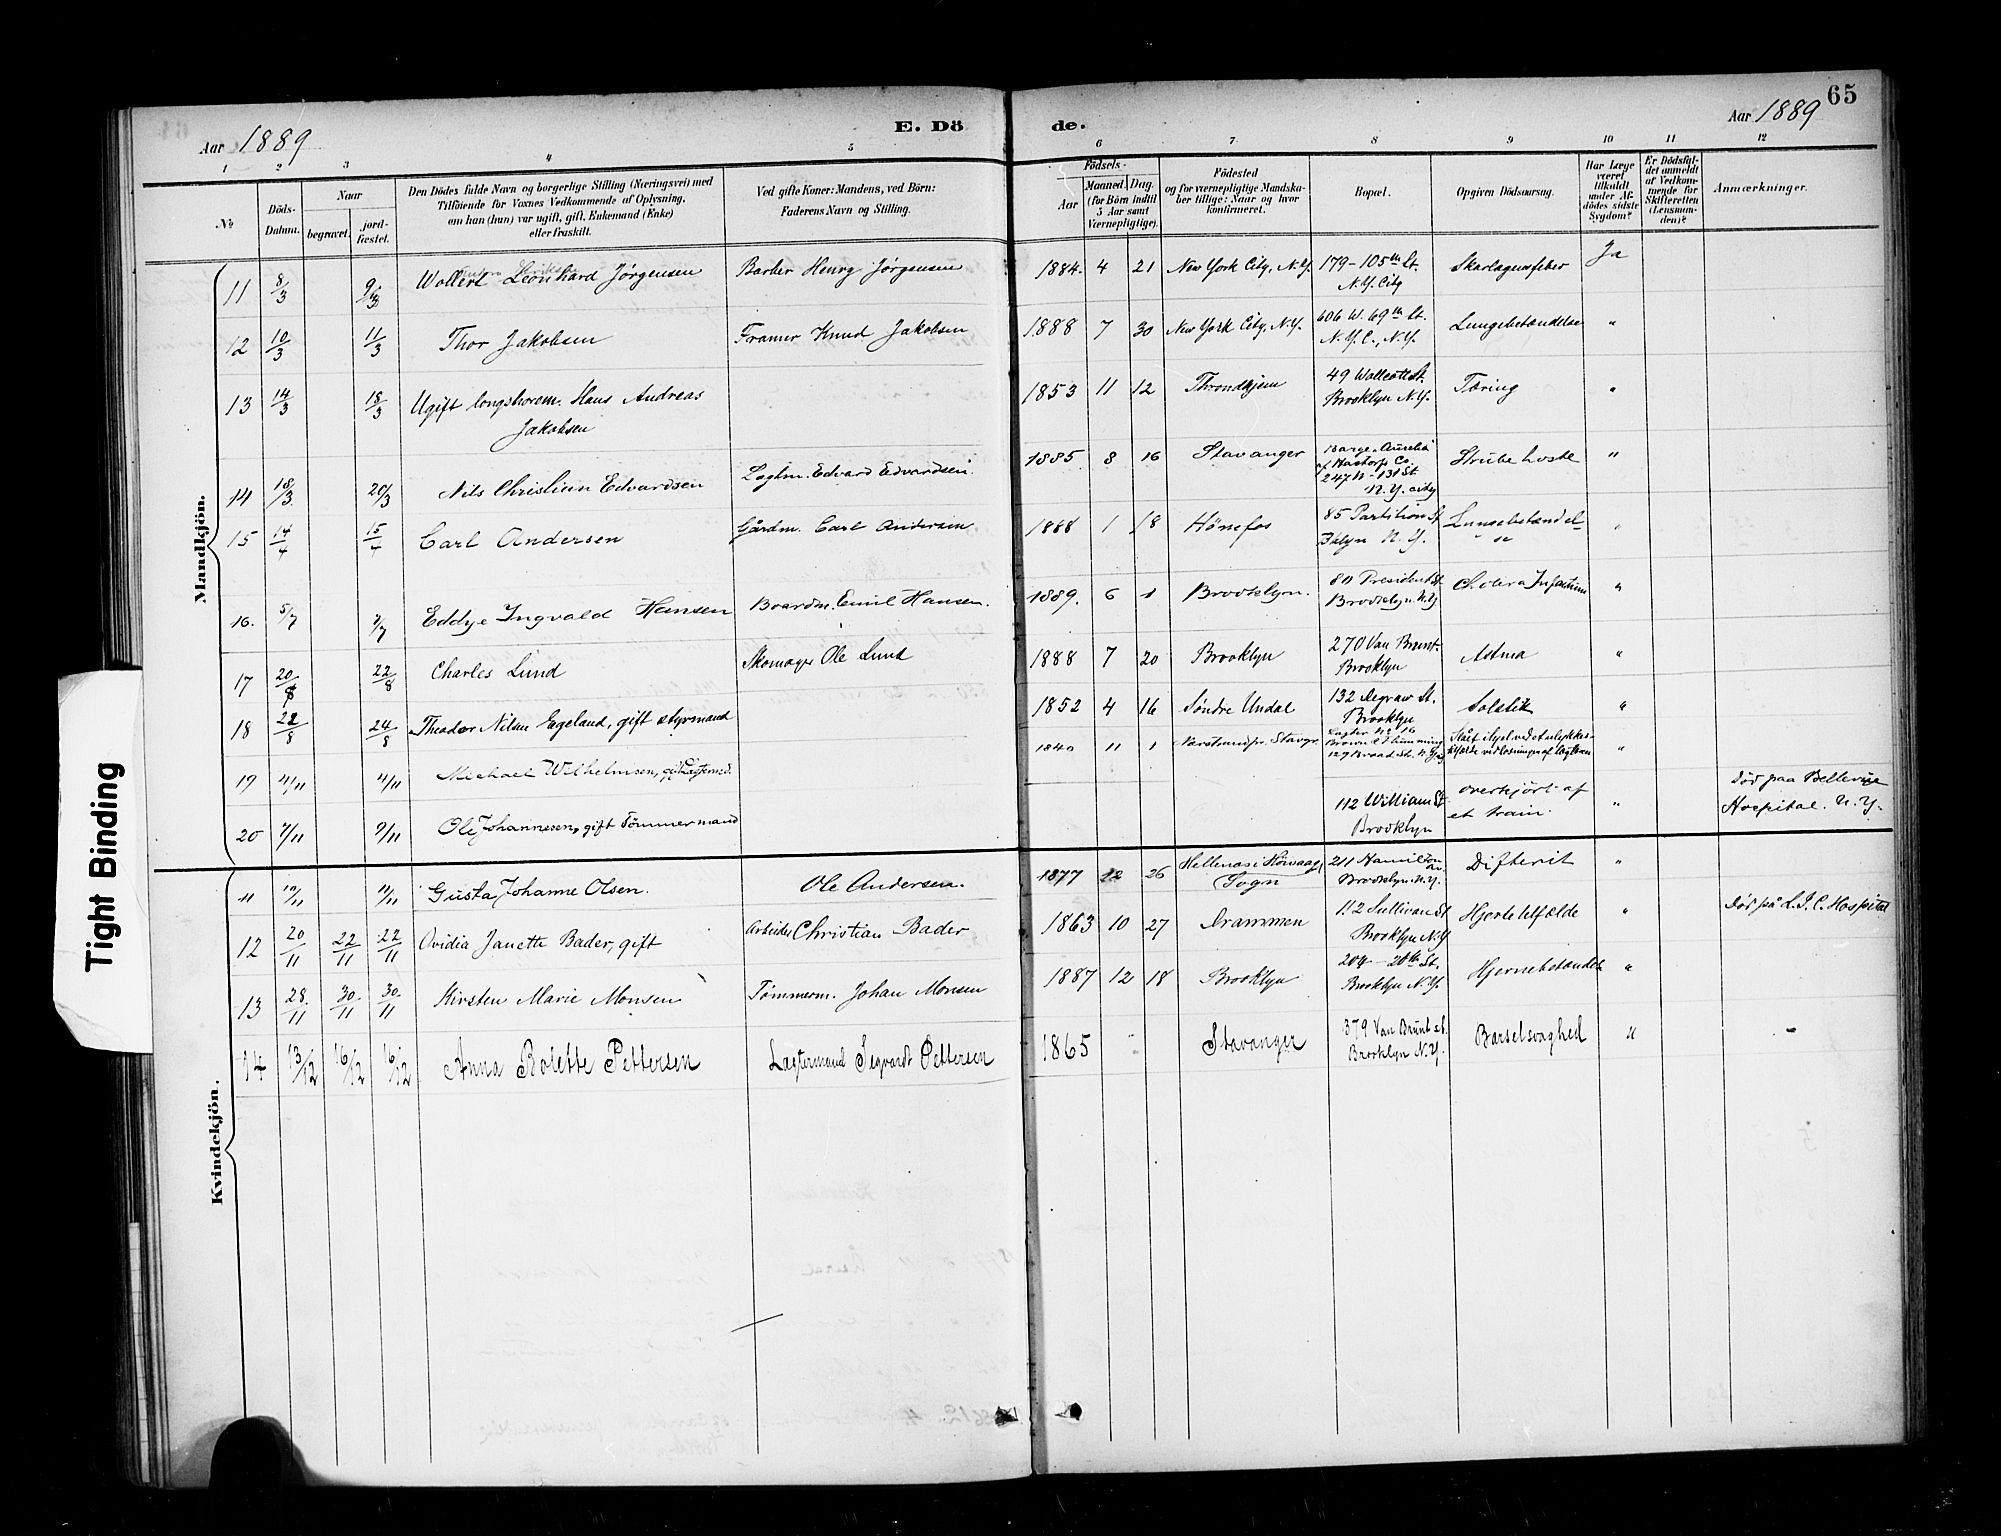 65
Aar 1889
E. Döde.
Aar 1889
1 2 3 4 5 6 7 8 9 10 11 12
№
Döds-Datum.
Naar
begravet.
jord-fæstet.
Den Dödes fulde Navn og borgerlige Stilling (Næringsvei) med
Tilföiende for Voxnes Vedkommende af Oplysning,
om han (hun) var ugift, gift, Enkemand (Enke)
eller fraskilt.
Ved gifte Koner: Mandens, ved Börn:
Faderens Navn og Stilling.
Födsels-
Aar
Maaned. Dag.
(for Börn indtil
5 Aar samt
Værnepligtige).
Födested
og for værnepligtige Mandska-
ber tillige: Naar og hvor
konfirmeret.
Bopæl.
Opgiven Dödsaarsag.
Har Læge
været
tilkaldt
under Af-
dödes sidste
Sygdom?
Er Dödsfal-
det anmeldt
af Vedkom-
mende for
Skifteretten
(Lensman-
den)?
Anmærkninger.
Mandkjön.
11 8/3 9/3 Wollert Leonhard Jørgensen Barber Henry Jørgensen 1884 4 21 New York City, N.Y. 179-105th St. N.Y. City Skarlagensfeber Ja
12 10/3 11/3 Thor Jakobsen Framer Knud Jakobsen 1888 7 30 New York City, N.Y. 606 W. 69th St. N.Y.C., N.Y. Lungebetændelse "
13 14/3 18/3 Ugift longshorem. Hans Andreas Jakobsen 1853 11 12 Throndhjem 49 Wallcott St. Brooklyn N.Y. Tæring "
14 18/3 20/3 Nils Christian Edvardsen Lagtm. Edvard Edvardsen 1885 8 16 Stavanger Barge "Aurelia" af Hastorfs Co. 247 W-131 St N.Y. city Strubehoste "
15 14/4 15/4 Carl Andersen Gårdm. Carl Andersen 1888 1 18 Hønefos 85 Partition St Bklyn N.Y. Lungebetændelse "
16. 5/7 7/7 Eddye Ingvald Hansen Boardm. Emil Hansen. 1889. 6 1 Brooklyn. 80 President St. Brooklyn N.Y Cholera Infantum "
17 20/8 22/8 Charles Lund Skomager Ole Lund 1888 7 20 Brooklyn 270 Van Brunt Brooklyn Astma "
18 22/8 24/8 Theodor Nilsen Egeland, gift styrmand 1852 4 16 Søndre Undal 132 Degraw St. Brooklyn Solstik "
19 4/11 4/11 Michael Wilhelmsen, gift Lagtermd. 1840 11 1 Nærstrand pr. Stavgr. Lagter No 16 129 Broad St. N.Y. Slået ihjel ved et ulykkestilfælde ved losningen af lagteren "
20 7/11 9/11 Ole Johannesen, gift Tømmermand 112 William St Brooklyn overkjørt af et train "
Död paa Bellevue Hospital. N.Y.
Kvindekjön.
11 10/11 11/11 Gusta Johanne Olsen. Ole Andersen. 1877 12 26 Sogn 211 Hamilton Av. Brooklyn N.Y. Difterit "
12 20/11 22/11 22/11 Ovidia Janette Bader, gift Arbeider Christian Bader 1863 10 27 Drammen 112 Sullivan St Brooklyn N.Y Hjertetilfælde " Död på L.I.C. Hospital
13 28/11 30/11 30/11 Kirsten Marie Monsen Tømmerm. Johan Monsen 1887 12 18 Brooklyn 204 - 20th St. Brooklyn N.Y. Hjernebetændelse "
14 13/12 16/12 16/12 Anna Rolette Pettersen Lagtermand Segvardt Pettersen 1865 Stavanger 379 Van Brunt St. Brooklyn N.Y. Barselsvaghed "
Tight Binding